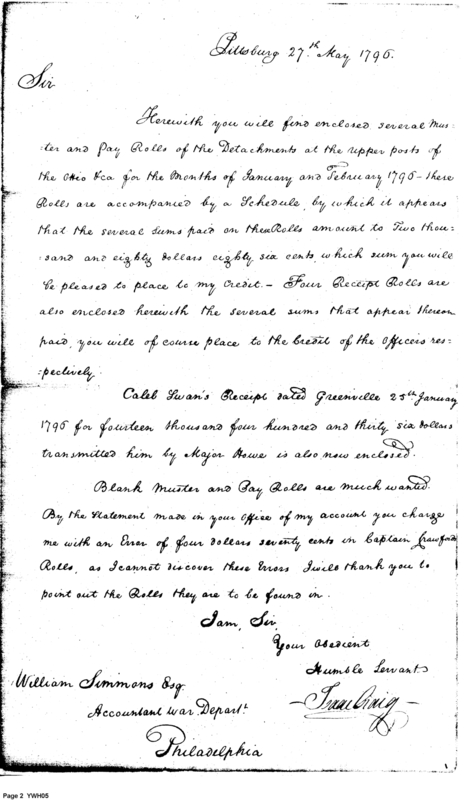 Pittsburg 27.th May 1796.
Sir
Herewith you will find enclosed several Mus-
ter and Pay Rolls of the Detachments at the upper posts of
the Ohio &ca for the Months of January and February 1796 - these
Rolls are accompanied by a Schedule, by which it appears
that the several sums paid on these Rolls amount to Two thou-
sand and eighty dollars eighty six cents which sum you will
be pleased to place to my Credit. - Four Receipt Rolls are
also enclosed herewith the several sums that appear thereon
paid, you will of course place to the Credit of the Officers res-
pectively.
Caleb Swan's Receipt dated Greenville 25th January
1796 for fourteen thousand four hundred and thirty six dollars
transmitted him by Major Howe is also now enclosed.
Blank Muster and Pay Rolls are much wanted.
By the Statement made in your Office of my account you charge
me with an Error of four dollars seventy cents in Captain Crawfords
Rolls, as I cannot discover these Errors I will thank you to
point out the Rolls they are to be found in.
I am, Sir,
Your Obedient
Humble Servant
Isaac Craig
William Simmons Esq
Accountant War Depart.t
Philadelphia
Page 2 YWH05